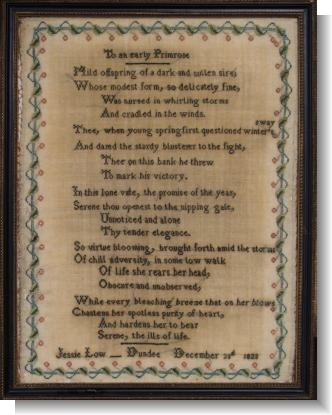 To an early Primrose
Mild offspring of a dark and sullen sire,
Whose modest form, so delicately fine,
Was nursed in whirling storms
And cradled in the winds.
Thee, when young spring first questioned winter's sway
And dared the sturdy blusterer to the fight,
Thee on this bank he threw
To mark his victory.
In this lone vale, the promise of the year,
Serene thou openest to the nipping gale,
Unnoticed and alone
Thy tender elegance.
So virtue blooming, brought forth amid the storms
Of chill adversity, in some low walk
Of life she rears her head,
Obscure and unobserved,
While every bleaching breeze that on her blows
Chastens her spotless purity of heart,
And hardens her to bear
Serene, the ills of life.
Jessie Low — Dundee December